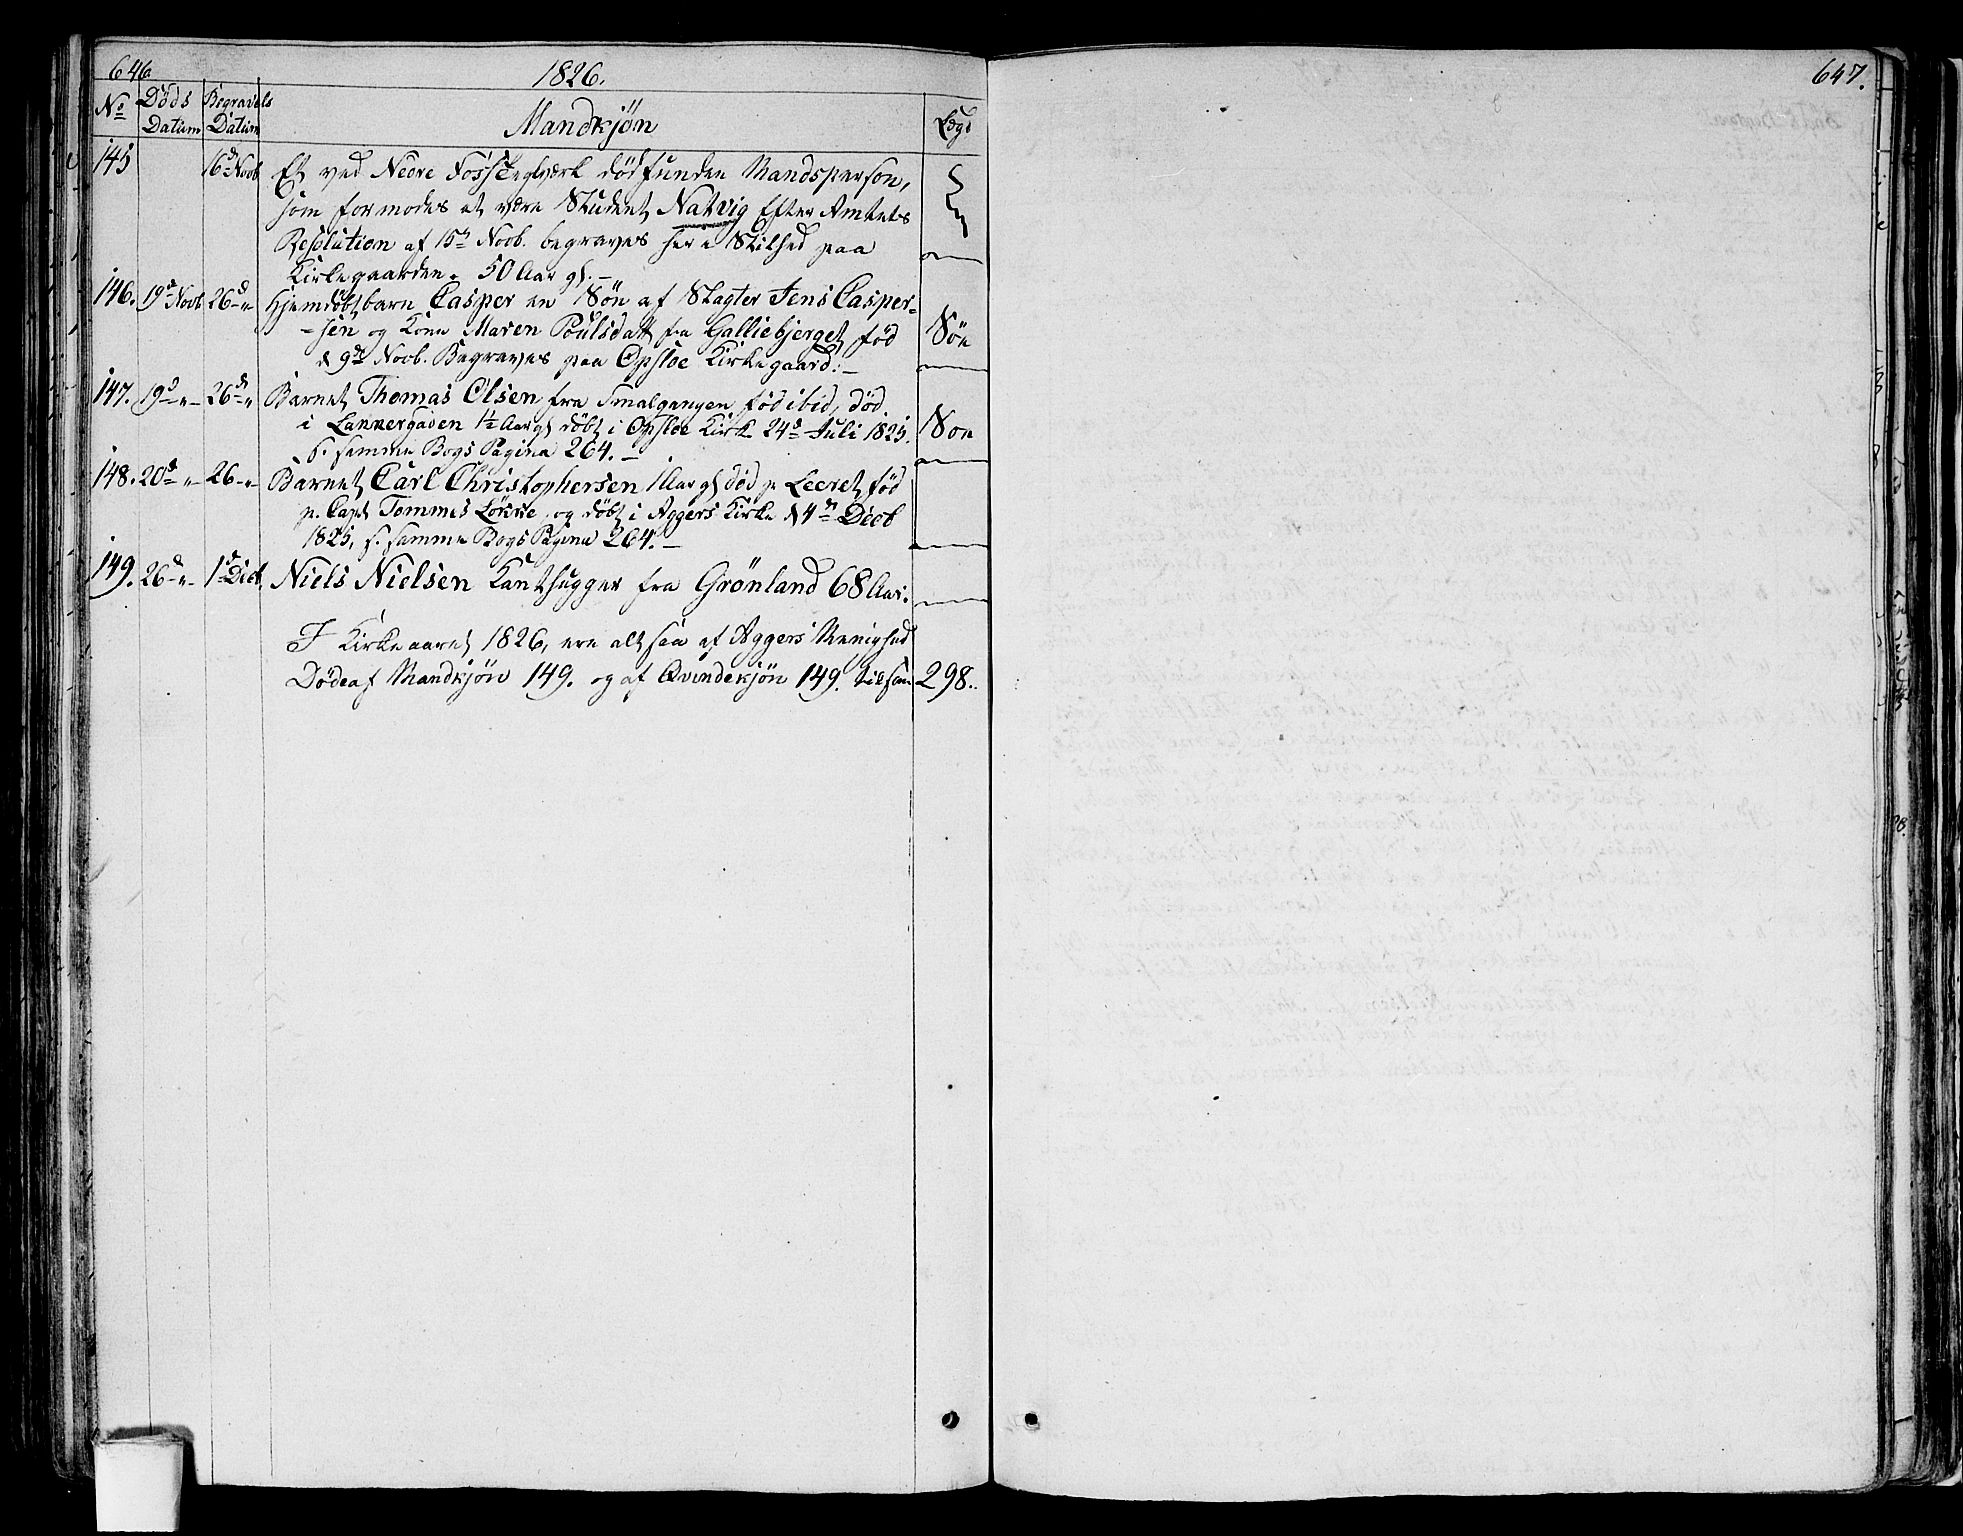 646
1826.
No Døds Datum Begravels Datum Mandkjøn Lægd
145 16d Novb. Et ved Nedre Foss Teglværk død funden Mandsperson,
som formodes at være Student Natvig Efter Amtets
Resolution af 15de Novb. begraves her i Stilhed paa
Kirkegaarden. 50 Aar gl. –
146. 19d Novb. 26d " Hjemdøbt barn Casper en Søn af Slagter Jens Casper-
-sen og Kone Maren Poulsdatt fra Galliebjerget fød Søn
d 9de Novb. Begraves paa Opsloe Kirkegaard. –
147. 19d " 26d " Barnet Thomas Olsen fra Smalgangen fød ibid, død
i Lannergaden 1½ Aar gl døbt i Opsloe Kirk 24d Juli 1825. Søn
S. samme Bogs Pagina 264. –
148. 20d " 26 " Barnet Carl Christophersen 1 Aar gl død p. Leeret fød
p. Capt Tommes Løkke og døbt i Aggers Kirke d 4de Decb
1825, s. samme Bogs Pagina 264. –
149. 26d " 1d Decb. Niels Nielsen Kanthugger fra Grønland 68 Aar.
I Kirkeaaret 1826, ere altsaa af Aggers Menighed
Døde af Mandkjøn 149. og af Qvindekjøn 149. tilsam 298.
647.